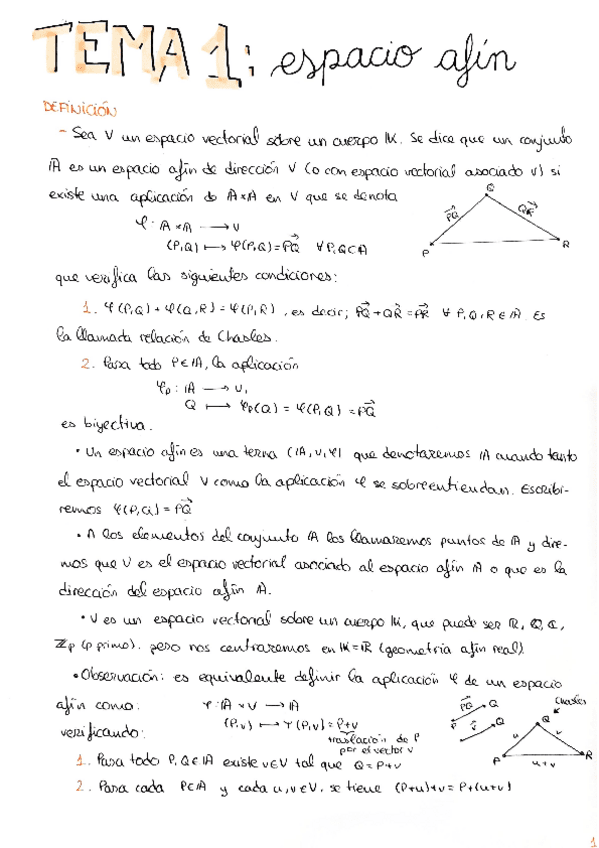 TEMA 1: espacio afín
DEFINICIÓN
- Sea V un espacio vectorial sobre un cuerpo K. Se dice que un conjunto
A es un espacio afín de dirección V (o con espacio vectorial asociado V) si
existe una aplicación de A×A en V que se denota
φ: A×A → V
(P,Q) ↦ φ(P,Q)=PQ⃗ ∀P,Q∈A
PQ⃗ QR⃗
P Q R
que verifica las siguientes condiciones:
1. φ(P,Q)+φ(Q,R)=φ(P,R), es decir; PQ⃗+QR⃗=PR⃗ ∀ P,Q,R∈A. Es
la llamada relación de Chasles.
2. Para todo P∈A, la aplicación
φp: A → V,
Q ↦ φp(Q)=φ(P,Q)=PQ⃗
es biyectiva.
• Un espacio afín es una terna (A,V,φ) que denotaremos A cuando tanto
el espacio vectorial V como la aplicación φ se sobreentiendan. Escribi-
remos φ(P,Q)=PQ⃗
• A los elementos del conjunto A los llamaremos puntos de A y dire-
mos que V es el espacio vectorial asociado al espacio afín A o que es la
dirección del espacio afín A.
• V es un espacio vectorial sobre un cuerpo K, que puede ser R, Q, C,
Zp (p primo). pero nos centraremos en K=R (geometría afín real)
• Observación: es equivalente definir la aplicación φ de un espacio
afín como: Υ: A×V → A
verificando: (P,v) ↦ Υ(P,v)=P+v
traslación de P
por el vector v
PQ⃗ Q
P v⃗ Q
Chasles
P Q R u v u+v
1. Para todo P,Q∈A existe v∈V tal que Q=P+v
2. Para cada P∈A y cada u,v∈V, se tiene (P+u)+v=P+(u+v)
1